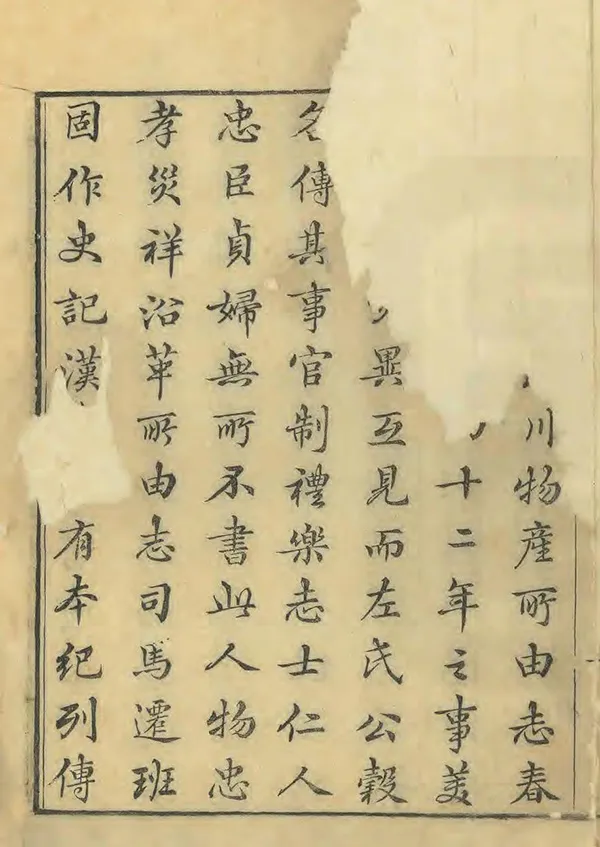 川物産所由志春
十二年之事美
異互見而左氏公穀
名傳其事官制禮樂志士仁人
忠臣貞婦無所不書此人物忠
孝災祥沿革所由志司馬遷班
固作史記漢有本紀列傳